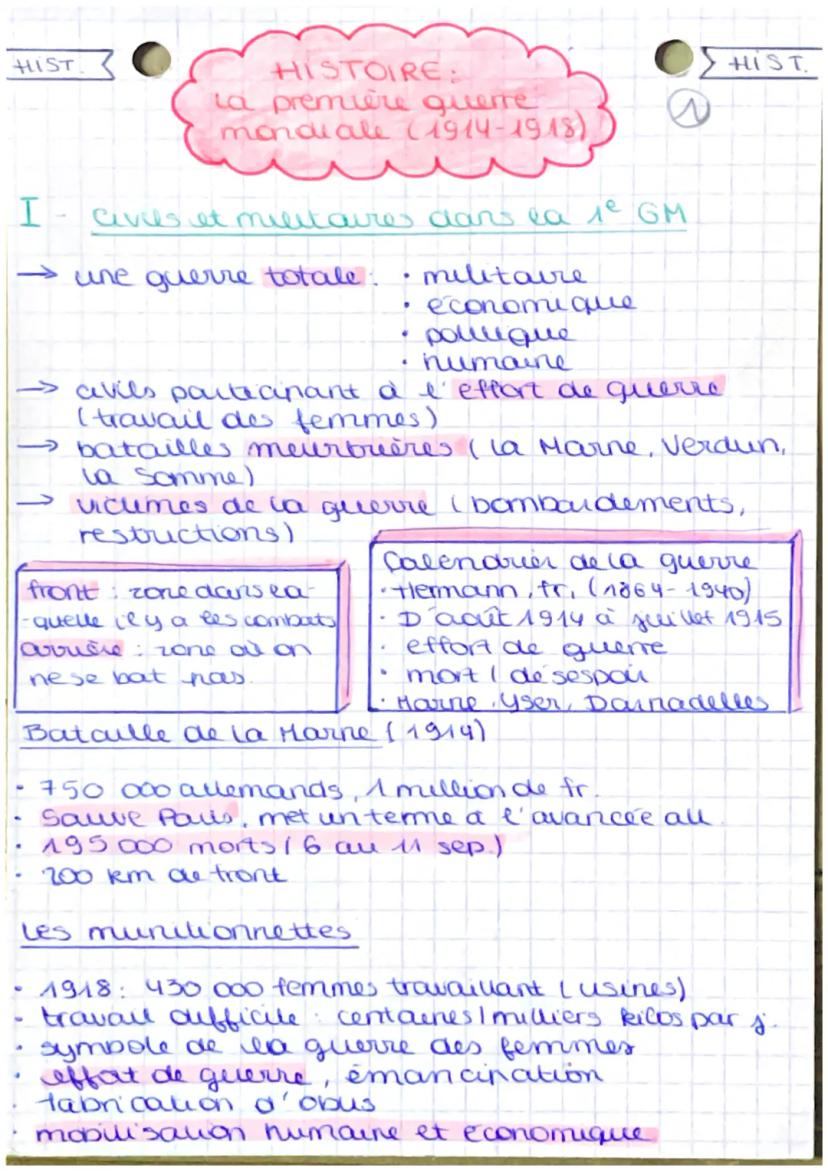 HIST.
HIST.
HISTOIRE:
La première guerre
mondiale (1914-1918)
1
I - civils et militaires dans la 1e GM
→ une guerre totale : • militaire
• économique
• politique
• humaine
→ civils participant à l'effort de guerre
(travail des femmes)
→ batailles meurtrières (la Marne, Verdun,
la Somme)
→ victimes de la guerre (bombardements,
restrictions)
front : zone dans la-
-quelle il y a les combats
arrière : zone où on
ne se bat pas.
Calendrier de la guerre
• Hermann, fr, (1864-1940)
• D'août 1914 à juillet 1915
• effort de guerre
• mort / désespoir
• Marne, Yser, Dardanelles
Bataille de la Marne (1914)
• 750 000 allemands, 1 million de fr.
• Sauve Paris, met un terme à l'avancée all
• 195 000 morts (6 au 11 sep.)
• 200 km de front
Les munitionnettes
• 1918 : 430 000 femmes travaillant (usines)
• travail difficile : centaines/milliers kilos par j.
• symbole de la guerre des femmes
• effort de guerre, émancipation
• fabrication d'obus
• mobilisation humaine et économique